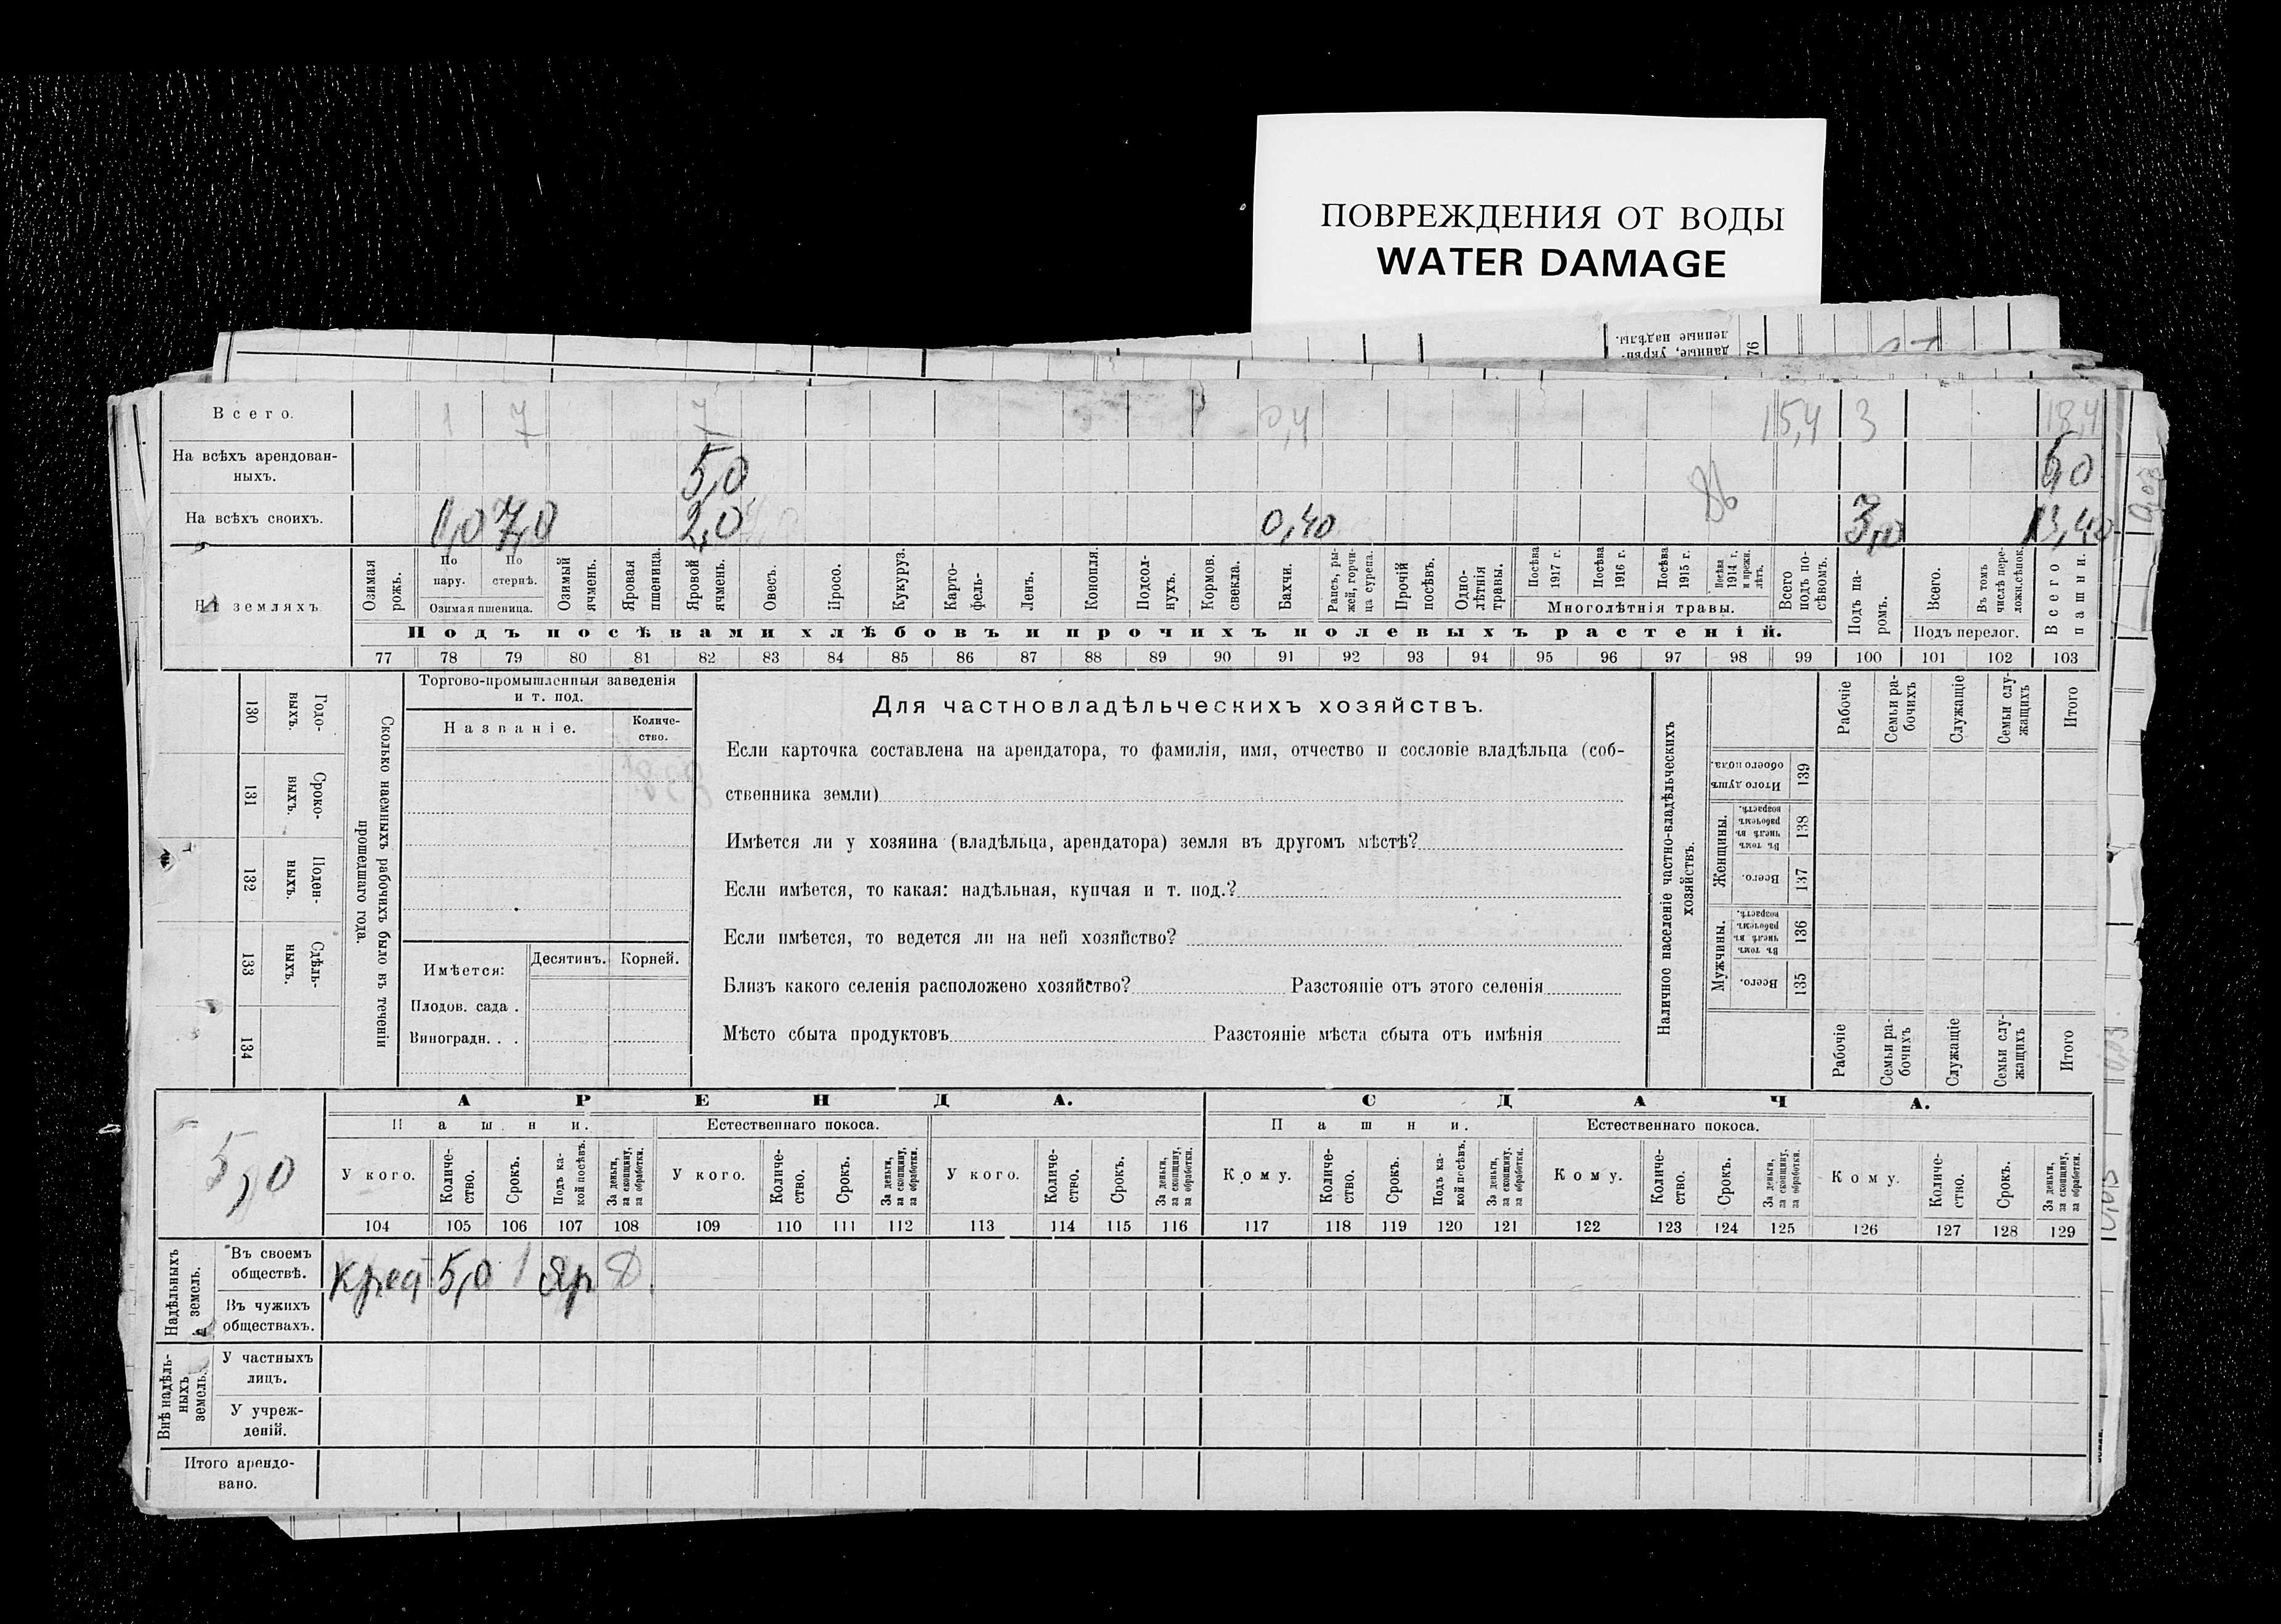 ПОВРЕЖДЕНИЯ ОТ ВОДЫ
WATER DAMAGE
ленные надѣлы.
76
Всего. 1 7 7 0,4 15,4 3 18,4
На всѣхъ арендован-
ныхъ. 5,0 5,0
На всѣхъ своихъ. 1,0 7,0 2,0 0,40 86 3,0 13,40
На земляхъ
Озимая рожь.
По пару.
По стернѣ.
Озимая пшеница.
Озимый ячмень.
Яровая пшеница.
Яровой ячмень.
Овесъ.
Просо.
Кукуруз.
Карто-
фель-
Ленъ.
Конопля.
Подсол-
нухъ.
Кормов. свекла.
Бахчи.
Рапсъ, ры-
жей, горчи-
ца сурепа.
Прочій посѣвъ.
Одно-
лѣтнія травы.
Посѣва 1917 г.
Посѣва 1916 г.
Посѣва 1915 г.
Посѣва 1914 г. и прежн. лѣтъ.
Многолѣтнія травы.
Всего подъ по-
сѣвомъ.
Подъ па-
ромъ.
Всего.
Въ томъ числѣ пере-
ложн. сѣнок.
Подъ перелог.
Всего пашни.
Подъ посѣвами хлѣбовъ и прочихъ полевыхъ растеній.
77 78 79 80 81 82 83 84 85 86 87 88 89 90 91 92 93 94 95 96 97 98 99 100 101 102 103
130 Годо-
выхъ.
131 Сроко-
выхъ.
132 Поден-
ныхъ.
133 Сдѣль-
ныхъ.
134
Сколько наемныхъ рабочихъ было въ теченіи
прошедшаго года.
Торгово-промышленныя заведенія
и т. под.
Названіе.
Количе-
ство.
Имѣется:
Десятинъ. Корней.
Плодов. сада .
Виноградн. . .
Для частновладѣльческихъ хозяйствъ.
Если карточка составлена на арендатора, то фамилія, имя, отчество и сословіе владѣльца (соб-
ственника земли)
Имѣется ли у хозяина (владѣльца, арендатора) земля въ другомъ мѣстѣ?
Если имѣется, то какая: надѣльная, купчая и т. под.?
Если имѣется, то ведется ли на ней хозяйство?
Близъ какого селенія расположено хозяйство? Разстояніе отъ этого селенія
Мѣсто сбыта продуктовъ Разстояніе мѣста сбыта отъ имѣнія
Наличное населеніе частно-владѣльческихъ
хозяйствъ.
Рабочіе
Семьи ра-
бочихъ
Служащіе
Семьи слу-
жащихъ
Итого
Итого душъ обоего пола. 139
Женщины.
Въ томъ числѣ въ рабочемъ возрастѣ. 138
Всего. 137
Мужчины.
Въ томъ числѣ въ рабочемъ возрастѣ. 136
Всего. 135
Рабочіе
Семьи ра-
бочихъ
Служащіе
Семьи слу-
жащихъ
Итого
5,0
АРЕНДА. СДАЧА.
Пашни. Естественнаго покоса. Пашни. Естественнаго покоса.
У кого.
Количе-
ство.
Срокъ.
Подъ ка-
кой посѣвъ.
За деньги, за скопщину, за обработки.
У кого.
Количе-
ство.
Срокъ.
За деньги, за скопщину, за обработки.
У кого.
Количе-
ство.
Срокъ.
За деньги, за скопщину, за обработки.
Кому.
Количе-
ство.
Срокъ.
Подъ ка-
кой посѣвъ.
За деньги, за скопщину, за обработки.
Кому.
Количе-
ство.
Срокъ.
За деньги, за скопщину, за обработки.
Кому.
Количе-
ство.
Срокъ.
За деньги, за скопщину, за обработки.
104 105 106 107 108 109 110 111 112 113 114 115 116 117 118 119 120 121 122 123 124 125 126 127 128 129
Надѣльныхъ земель.
Въ своемъ
обществѣ. Крест 5,0 1 Яр Д.
Въ чужихъ
обществахъ.
Внѣ надѣль-
ныхъ земель.
У частныхъ
лицъ.
У учреж-
деній.
Итого арендо-
вано.